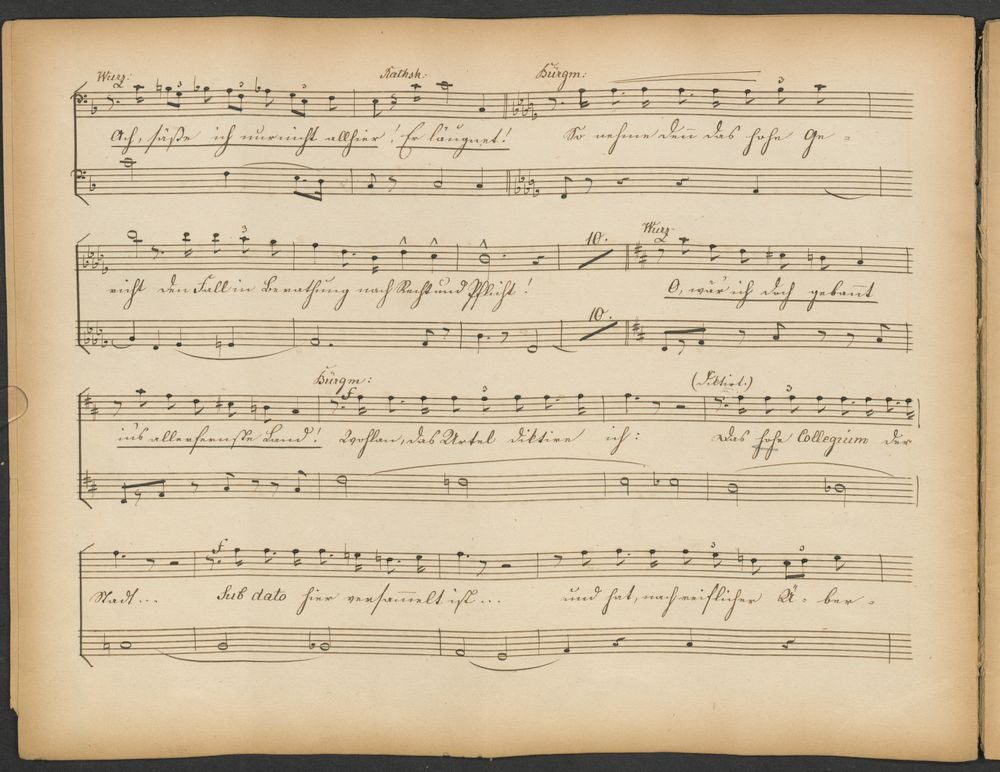 Wurz: Rathsh: Bürgm:
Ach, säße ich nur nicht allhier! Er läugnet! So nehme denn das hohe Ge-
10. Wurz:
richt den Fall in Berathung nach Recht und Pflicht! O, wär ich doch gebannt
10.
Bürgm: f (Diktirt.)
ins allerfernste Land! Wohlan, das Urtel diktire ich: Das hohe Collegium der
f
Stadt... Sub dato hier versam̅elt ist... und hat, nach reiflicher Ü-ber-